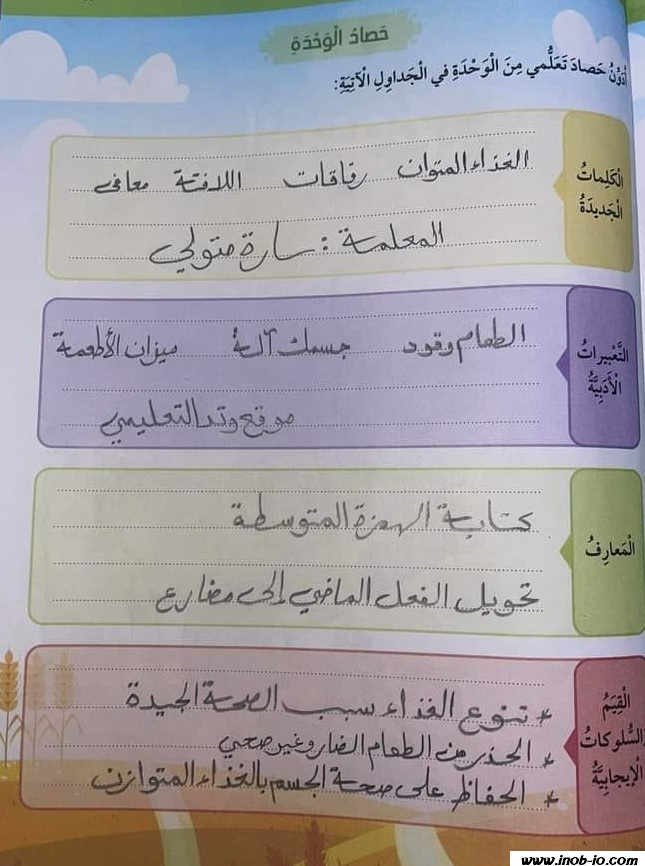 حَصادُ الْوَحْدَةِ
أُدَوِّنُ حَصادَ تَعَلُّمي مِنَ الْوَحْدَةِ في الْجَداوِلِ الْآتِيَةِ:
الْكَلِماتُ الْجَديدَةُ
الغذاء المتوان رقاقات اللافتة معافى
المعلمة : سارة متولي
التَّعْبيراتُ الْأَدَبِيَّةُ
الطعام وقود جسمك آلة ميزان الأطعمة
موقع وتد التعليمي
الْمَعارِفُ
كتابة الهمزة المتوسطة
تحويل الفعل الماضي إلى مضارع
الْقِيَمُ
السُّلوكاتُ
الْإيجابِيَّةُ
* تنوع الغذاء سبب الصحة الجيدة
* الحذر من الطعام الضار وغير صحي
* الحفاظ على صحة الجسم بالغذاء المتوازن
www.jnob-jo.com